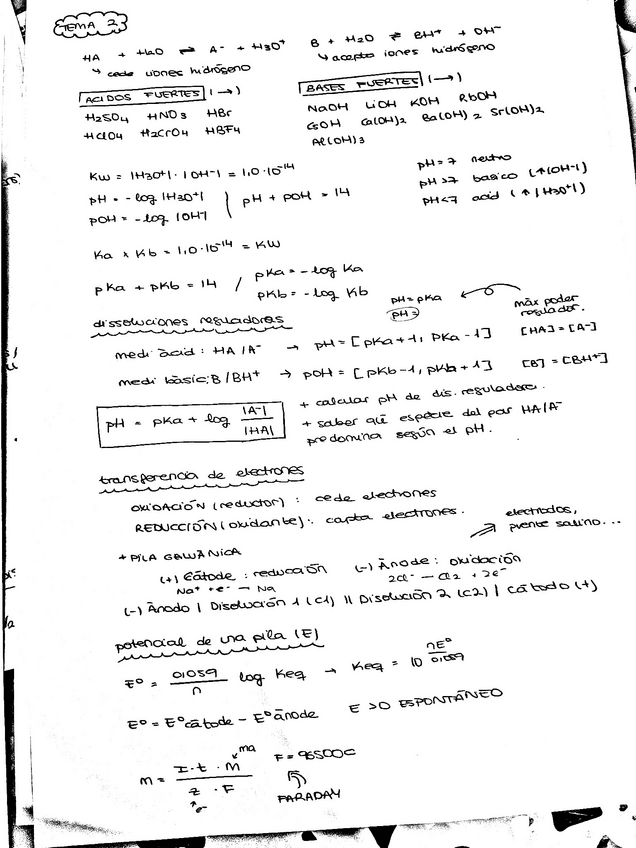 TEMA 2
HA + H2O ⇌ A- + H3O+
↳ cede iones hidrógeno
B + H2O ⇌ BH+ + OH-
↳ acepta iones hidrógeno
ACIDOS FUERTES (→)
H2SO4 HNO3 HBr
HClO4 H2CrO4 HBF4
BASES FUERTES (→)
NaOH LiOH KOH RbOH
CsOH Ca(OH)2 Ba(OH)2 Sr(OH)2
Al(OH)3
KW = |H3O+| · |OH-| = 1,0·10-14
pH = -log |H3O+| | pH + pOH = 14
pOH = -log |OH-|
pH = 7 neutro
pH > 7 basico (↑|OH-|)
pH < 7 acid (↑|H3O+|)
Ka x Kb = 1,0·10-14 = KW
pKa + pKb = 14 / pKa = -log Ka
pKb = -log Kb
pH = pKa ←
pH =
màx poder
regulador.
dissoluciones reguladoras
medi àcid: HA/A- → pH = [pKa+1, pKa-1] [HA] = [A-]
medi bàsic: B/BH+ → pOH = [pKb-1, pKb+1] [B] = [BH+]
pH = pKa + log |A-| / |HA|
+ calcular pH de dis. reguladora.
+ saber qué especie del par HA/A-
predomina según el pH.
transferencia de electrones
OXIDACIÓN (reductor): cede electrones
REDUCCIÓN (oxidante): capta electrones.
electrodos,
puente salino...
+ PILA GALVÀNICA
(+) Càtode: reducción (-) Ànode: oxidación
Na+ + e- → Na 2Cl- — Cl2 + 2e-
(-) Ànodo | Disolución 1 (C1) || Disolución 2 (C2) | Cátodo (+)
potencial de una pila (E)
Eº = 0,059 / n log Keq → Keq = 10 nEº / 0,059
Eº = Eºcàtode - Eºànode E > 0 ESPONTÁNEO
m = I · t · M / z · F
ma
e-
F = 96500C
FARADAY